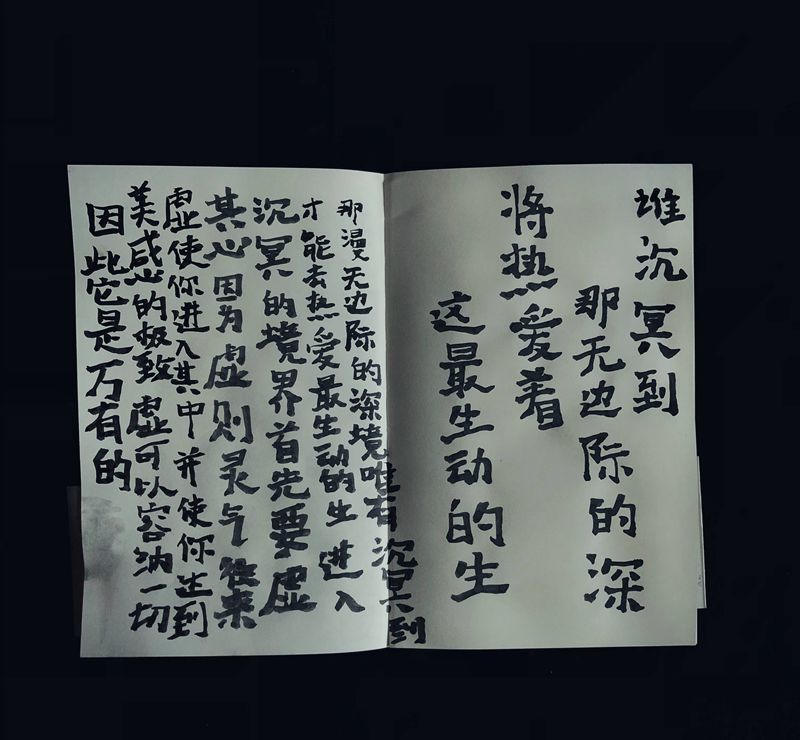 堆沉冥到
那无边际的深
将热爱着
这最生动的生
那漫无边际的深境唯有沉冥到
才能去热爱最生动的生 进入
沉冥的境界首先要虚
其心因为虚则灵气往来
虚使你进入其中并使你达到
美感的极致 虚可以容纳一切
因此它是万有的